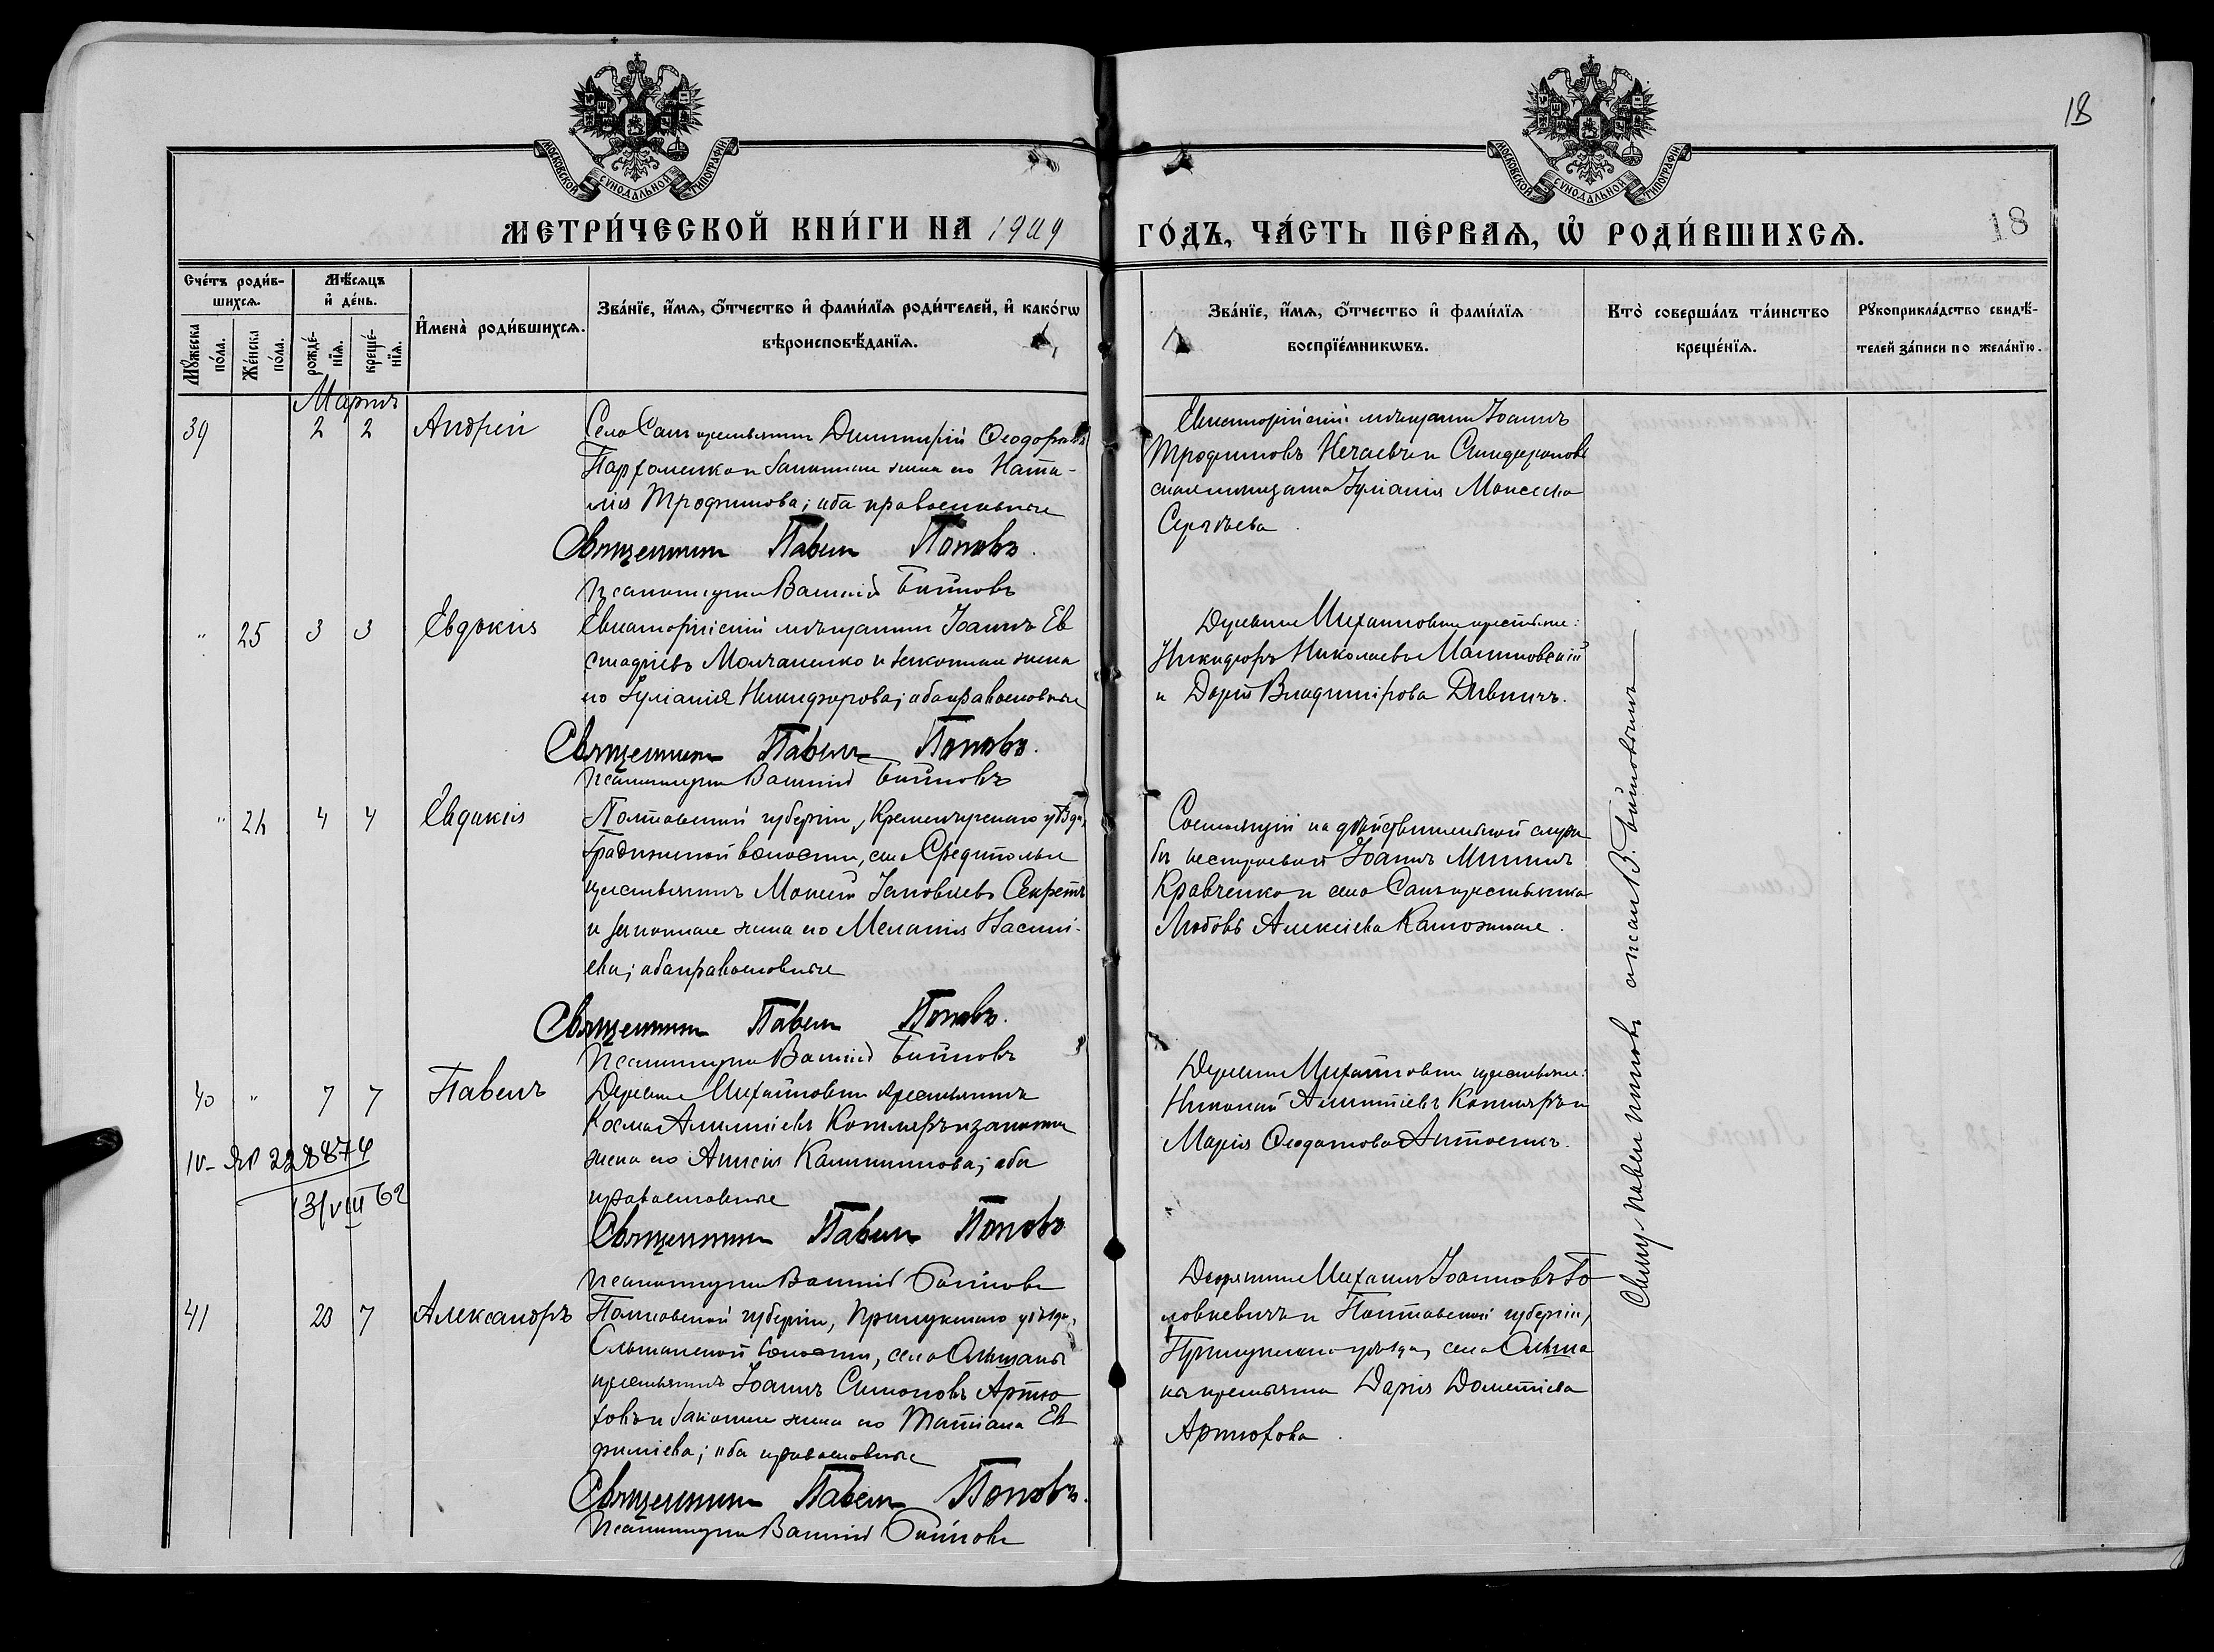 18
МОСКОВСКОЙ СѴНОДАЛЬНОЙ ТИПОГРАФІИ
МОСКОВСКОЙ СѴНОДАЛЬНОЙ ТИПОГРАФІИ
МЕТРИ́ЧЕСКОЙ КНИ́ГИ НА 1909
ГО́ДЪ, ЧА́СТЬ ПЕ́РВАѦ, Ѡ҆ РОДИ́ВШИХСѦ.
18
Сче́тъ роди́в-
шихсѧ.
Мꙋ́жеска по́ла.
Же́нска по́ла.
Мѣ́сѧцъ
и҆ де́нь.
рожде́-
нїѧ.
креще́-
нїѧ.
И҆мена̀ роди́вшихсѧ.
Зва́нїе, и҆́мѧ, ѻ҆́тчество и҆ фами́лїѧ роди́телей, и҆ како́гѡ
вѣроисповѣ́данїѧ.
Зва́нїе, и҆́мѧ, ѻ҆́тчество и҆ фами́лїѧ
воспрїе́мникѡвъ.
Кто̀ соверша́лъ та́инство
креще́нїѧ.
Рꙋкоприкла́дство свидѣ́-
телей за́писи по жела́нїю.
Мартъ
39 2 2 Андрей
Села Сакъ крестьянинъ Димитрій Ѳеодоровъ
Пархоменко и законная жена его Ната-
лія Трофимова; оба православные
Священникъ Павелъ Поповъ.
Псаломщикъ Василій
Евпаторійскій мѣщанинъ Іоаннъ
Трофимовъ Нечаевъ и Симферополь
ская мѣщанка Іуліанія Моисеева
" 25 3 3 Евдокія
Евпаторійскій мѣщанинъ Іоаннъ Ев
стафіевъ Молчаненко и законная жена
его Іуліанія Никифорова; оба православные
Священникъ Павелъ Поповъ.
Псаломщикъ Василій
Деревни Михайловки крестьяне:
Никифоръ Николаевъ Малиновскій
и Дарія Владимірова
" 26 4 4 Евдокія
Полтавской губерніи, Кременчугскаго уѣзда,
Градижской волости, села
крестьянинъ Мокей Іаковлевъ
и законная жена его Меланія Васил-
ева; оба православные
Священникъ Павелъ Поповъ.
Псаломщикъ Василій
Состоящій на дѣйствительной служ
бѣ нестроевой Іоаннъ Мининъ
Кравченко и села Сакъ крестьянка
Любовь Алексіева
40 " 7 7 Павелъ
Деревни Михайловки крестьянинъ
Косма и законная
жена его Анисія Калинникова; оба
православные
Священникъ Павелъ Поповъ
Псаломщикъ Василій
IV- ЯР 228874
31/VIII 62
Деревни Михайловки крестьяне:
Николай
Марія Ѳеодотова
41 20 7 Александръ
Полтавской губерніи, Прилукскаго уѣзда,
Ольшанской волости, села Ольшаны
крестьянинъ Іоаннъ Симоновъ Артю
ховъ и законная жена его Татіана Ев
фиміева; оба православные
Священникъ Павелъ Поповъ.
Псаломщикъ Василій
Дворянинъ Михаилъ Іоанновъ Го
ловкевичъ и Полтавской губерніи,
Прилукскаго уѣзда, села Ольша
нъ крестьянка Дарія Дометіева
Артюхова.
Священ. Павелъ Поповъ